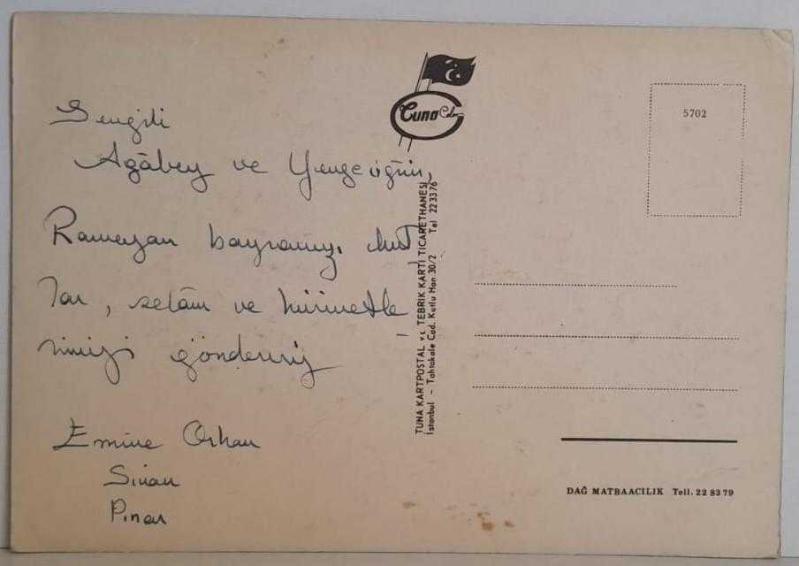 Sevgili
Ağâbey ve Yengeciğim,
Ramazan bayramızı kut
lar, selâm ve hürmetle
rimizi göndeririz
Emine Orhan
Sinan
Pınar
Tuna
TUNA KARTPOSTAL ve TEBRİK KARTI TİCARETHANESİ
İstanbul - Tahtakale Cad. Kutlu Han 30/2 Tel 223376
5702
DAĞ MATBAACILIK Tell. 22 83 79